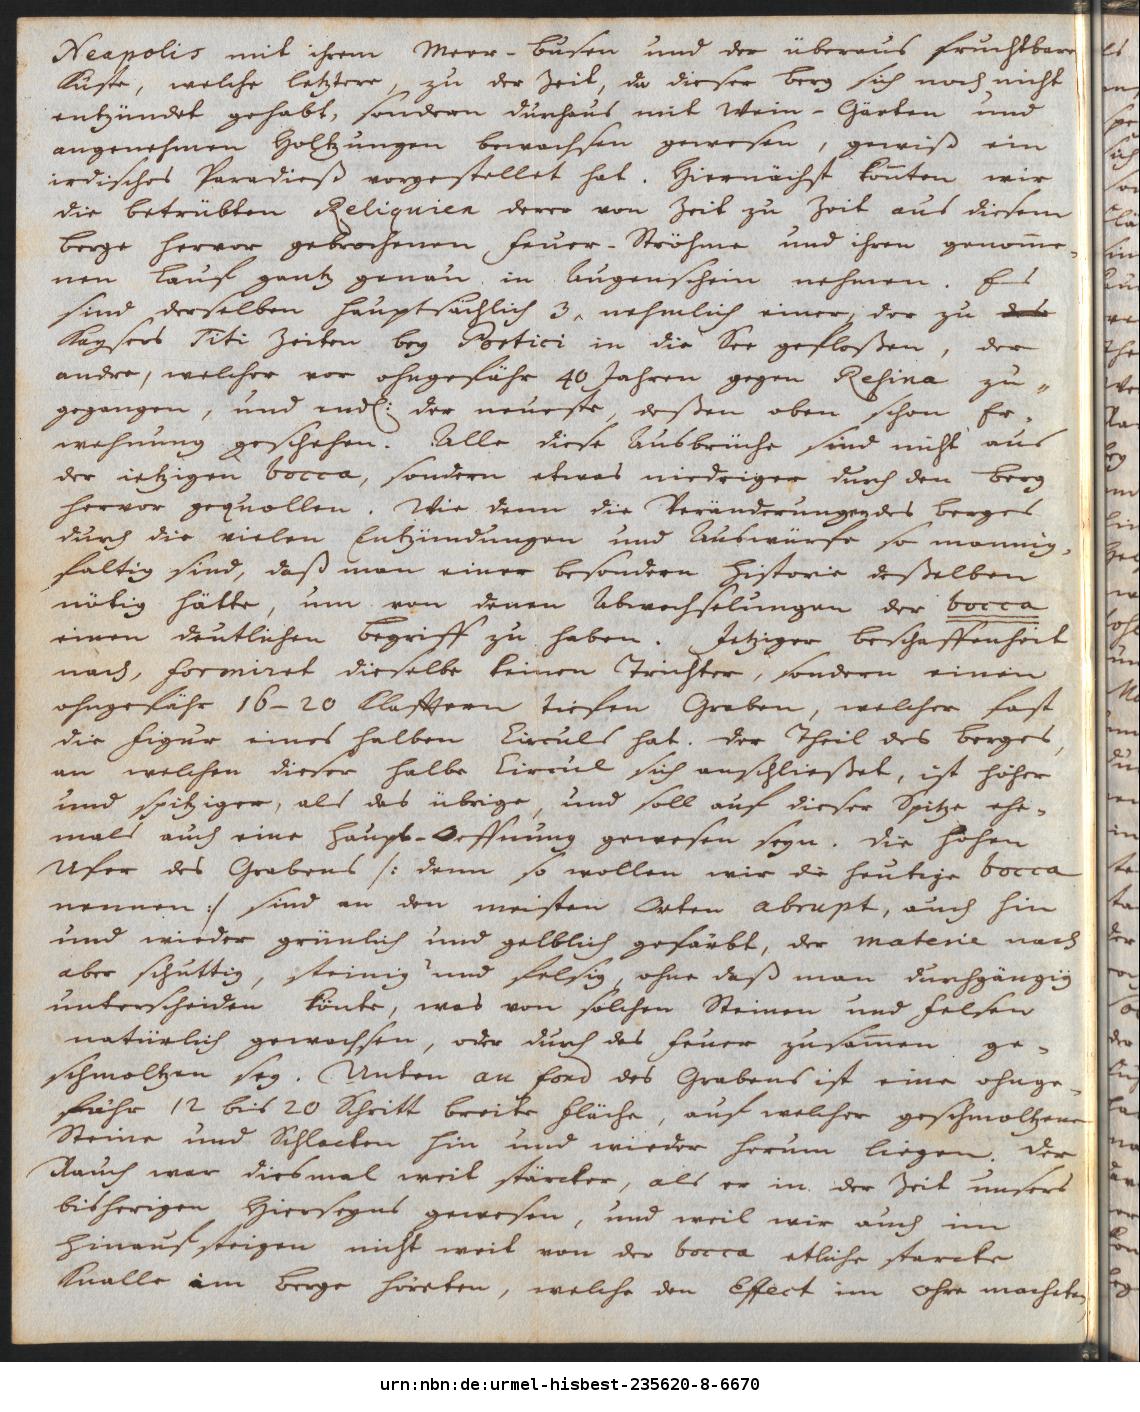 Neapolis mit ihrem Meer-Busen und der überaus fruchtbare
Küste, welche letztere, zu der Zeit, da dieser Berg sich noch nicht
entzündet gehabt, sondern durchaus mit Wein-Gärten und
angenehmen Holtzungen bewachsen gewesen, gewiß ein
irdisches Paradieß vorgestellet hat. Hiernächst kon̄ten wir
die betrübten Reliquien derer von Zeit zu Zeit aus diesem
Berge hervor gebrochenen Feuer-Ströhme und ihren genom̄e-
nen Lauf gantz genau in Augenschein nehmen. Es
sind derselben hauptsächlich 3, nehmlich einer, der zu
Kaysers Titi Zeiten bey Portici in die See gefloßen, der
andre, welcher vor ohngefähr 40 Jahren gegen Resina zu-
gegangen, und endl: der neueste, deßen oben schon Er-
wehnung geschehen. Alle diese Ausbrüche sind nicht aus
der ietzigen bocca, sondern etwas niedriger durch den Berg
hervor gequollen. Wie denn die Veränderungen des Berges
durch die vielen Entzündungen und Auswürfe so mannig-
faltig sind, daß man einer besondern Historie deßelben
nötig hätte, um von denen Abwechselungen der bocca
einen deutlichen Begriff zu haben. Jetziger Beschaffenheit
nach, formiret dieselbe keinen Trichter, sondern einen
ohngefähr 16-20 Klafftern tiefen Graben, welcher fast
die Figur eines halben Circuls hat. Der Theil des Berges,
an welchen dieser halbe Circul sich anschließet, ist höher
und spitziger, als das übrige, und soll auf dieser Spitze ehe-
mals auch eine Haupt-Oeffnung gewesen seyn. Die hohen
Ufer des Grabens /: denn so wollen wir die heutige bocca
nennen :/ sind an den meisten Orten abrupt, auch hin
und wieder grünlich und gelblich gefärbt, der materie nach
aber schuttig, steinig und felsig, ohne daß man durchgängig
unterscheiden könte, was von solchen Steinen und Felsen
natürlich gewachsen, oder durch das Feuer zusam̄en ge-
schmoltzen sey. Unten au fond des Grabens ist eine ohnge-
fähr 12 bis 20 Schritt breite Fläche, auf welcher geschmoltzene
Steine und Schlacken hin und wieder herum liegen. Der
Rauch war diesmal weit stärcker, als er in der Zeit unsers
bisherigen Hierseyns gewesen, und weil wir auch im
Hinaufsteigen nicht weit von der bocca etliche starcke
Knalle im Berge höreten, welche den Effect im Ohre machten,
urn:nbn:de:urmel-hisbest-235620-8-6670